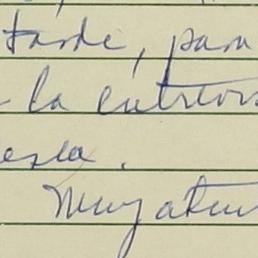 tarde, para
la entrevis
esea.
Muy aten